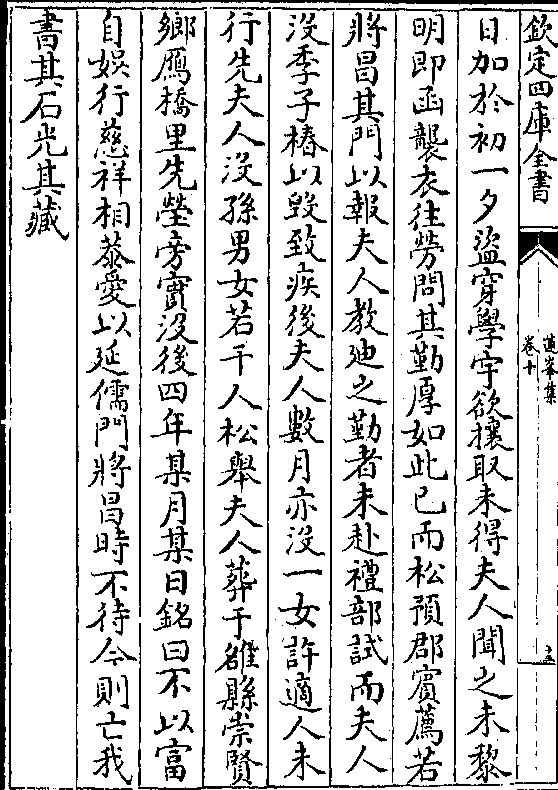 欽定四庫全書
蓮峯集
卷十
日加於初一夕盜穿學宇欲攘取未得夫人聞之未黎
明即函襲衣往勞問其勤厚如此已而松預郡賓薦若
將昌其門以報夫人教廸之勤者未赴禮部試而夫人
没季子椿以毀致疾後夫人數月亦没一女許適人未
行先夫人没孫男女若干人松舉夫人葬于雒縣崇賢
鄉鴈橋里先塋旁實没後四年某月某日銘曰不以富
自娛行慈祥相恭愛以延儒門將昌時不待今則亡我
書其石光其藏